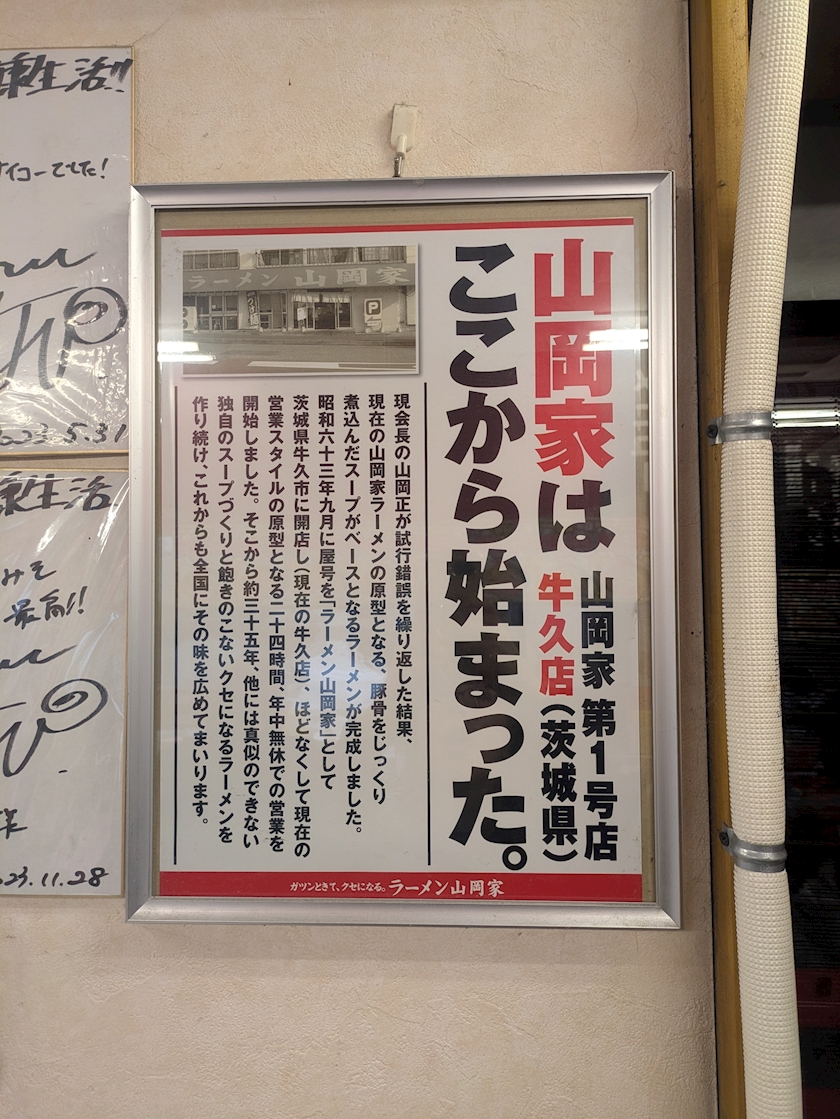 山岡家は
山岡家 第1号店
牛久店(茨城県)
ここから始まった。
ラーメン 山岡家
P
現会長の山岡正が試行錯誤を繰り返した結果、
現在の山岡家ラーメンの原型となる、豚骨をじっくり
煮込んだスープがベースとなるラーメンが完成しました。
昭和六十三年九月に屋号を「ラーメン山岡家」として
茨城県牛久市に開店し(現在の牛久店)、ほどなくして現在の
営業スタイルの原型となる二十四時間、年中無休での営業を
開始しました。そこから約三十五年、他には真似のできない
独自のスープづくりと飽きのこないクセになるラーメンを
作り続け、これからも全国にその味を広めてまいります。
ガツンときて、クセになる。ラーメン山岡家
康生活!!
イコーでした!
2023.5.31
康生活
みそ
最高!!
23.11.28